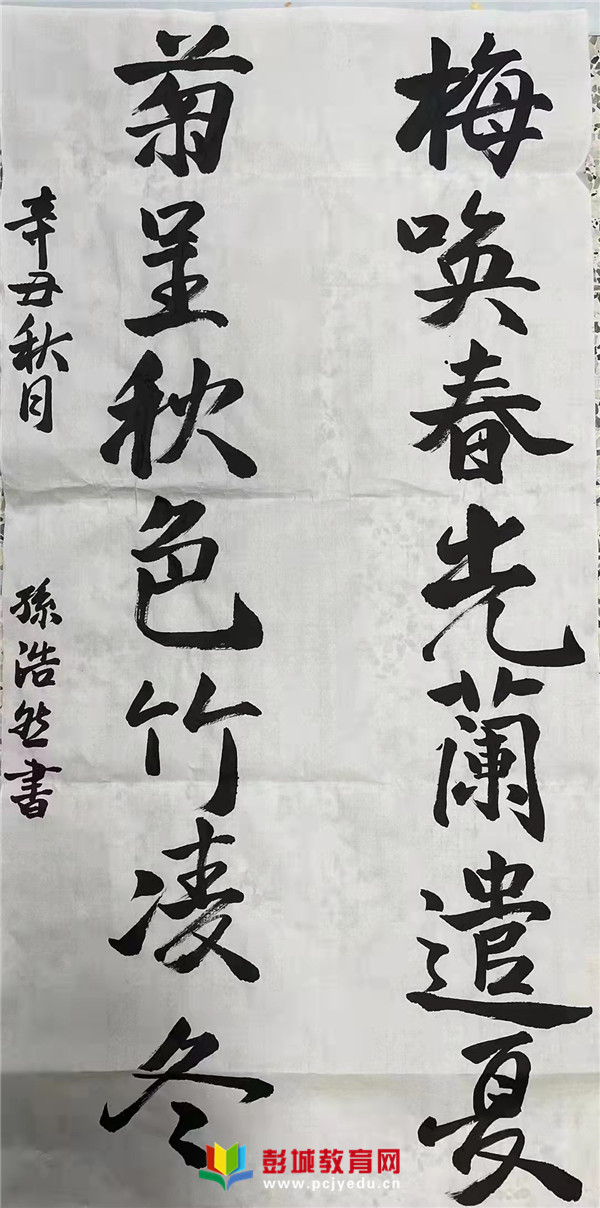 梅唤春先蘭遣夏
菊呈秋色竹凌冬
辛丑秋月 孫浩然書
彭城教育网
www.pcjyedu.cn